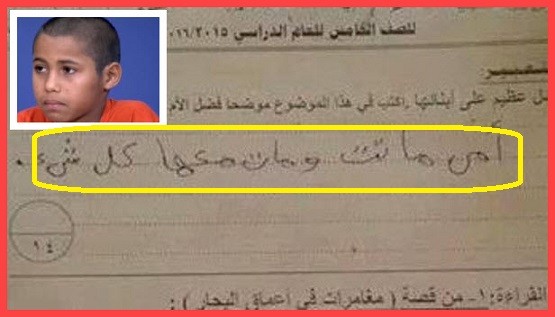 للصف الخامس للعام الدراسي ٢٠١٥/٠١٦
عظيم على أبنائها ,اكتب في هذا الموضوع موضحا فضل الأم
أمى ماتت ومات معها كل شيء .
١٤
القراءة: ١- من قصة ( مغامرات في أعماق البحار ) :